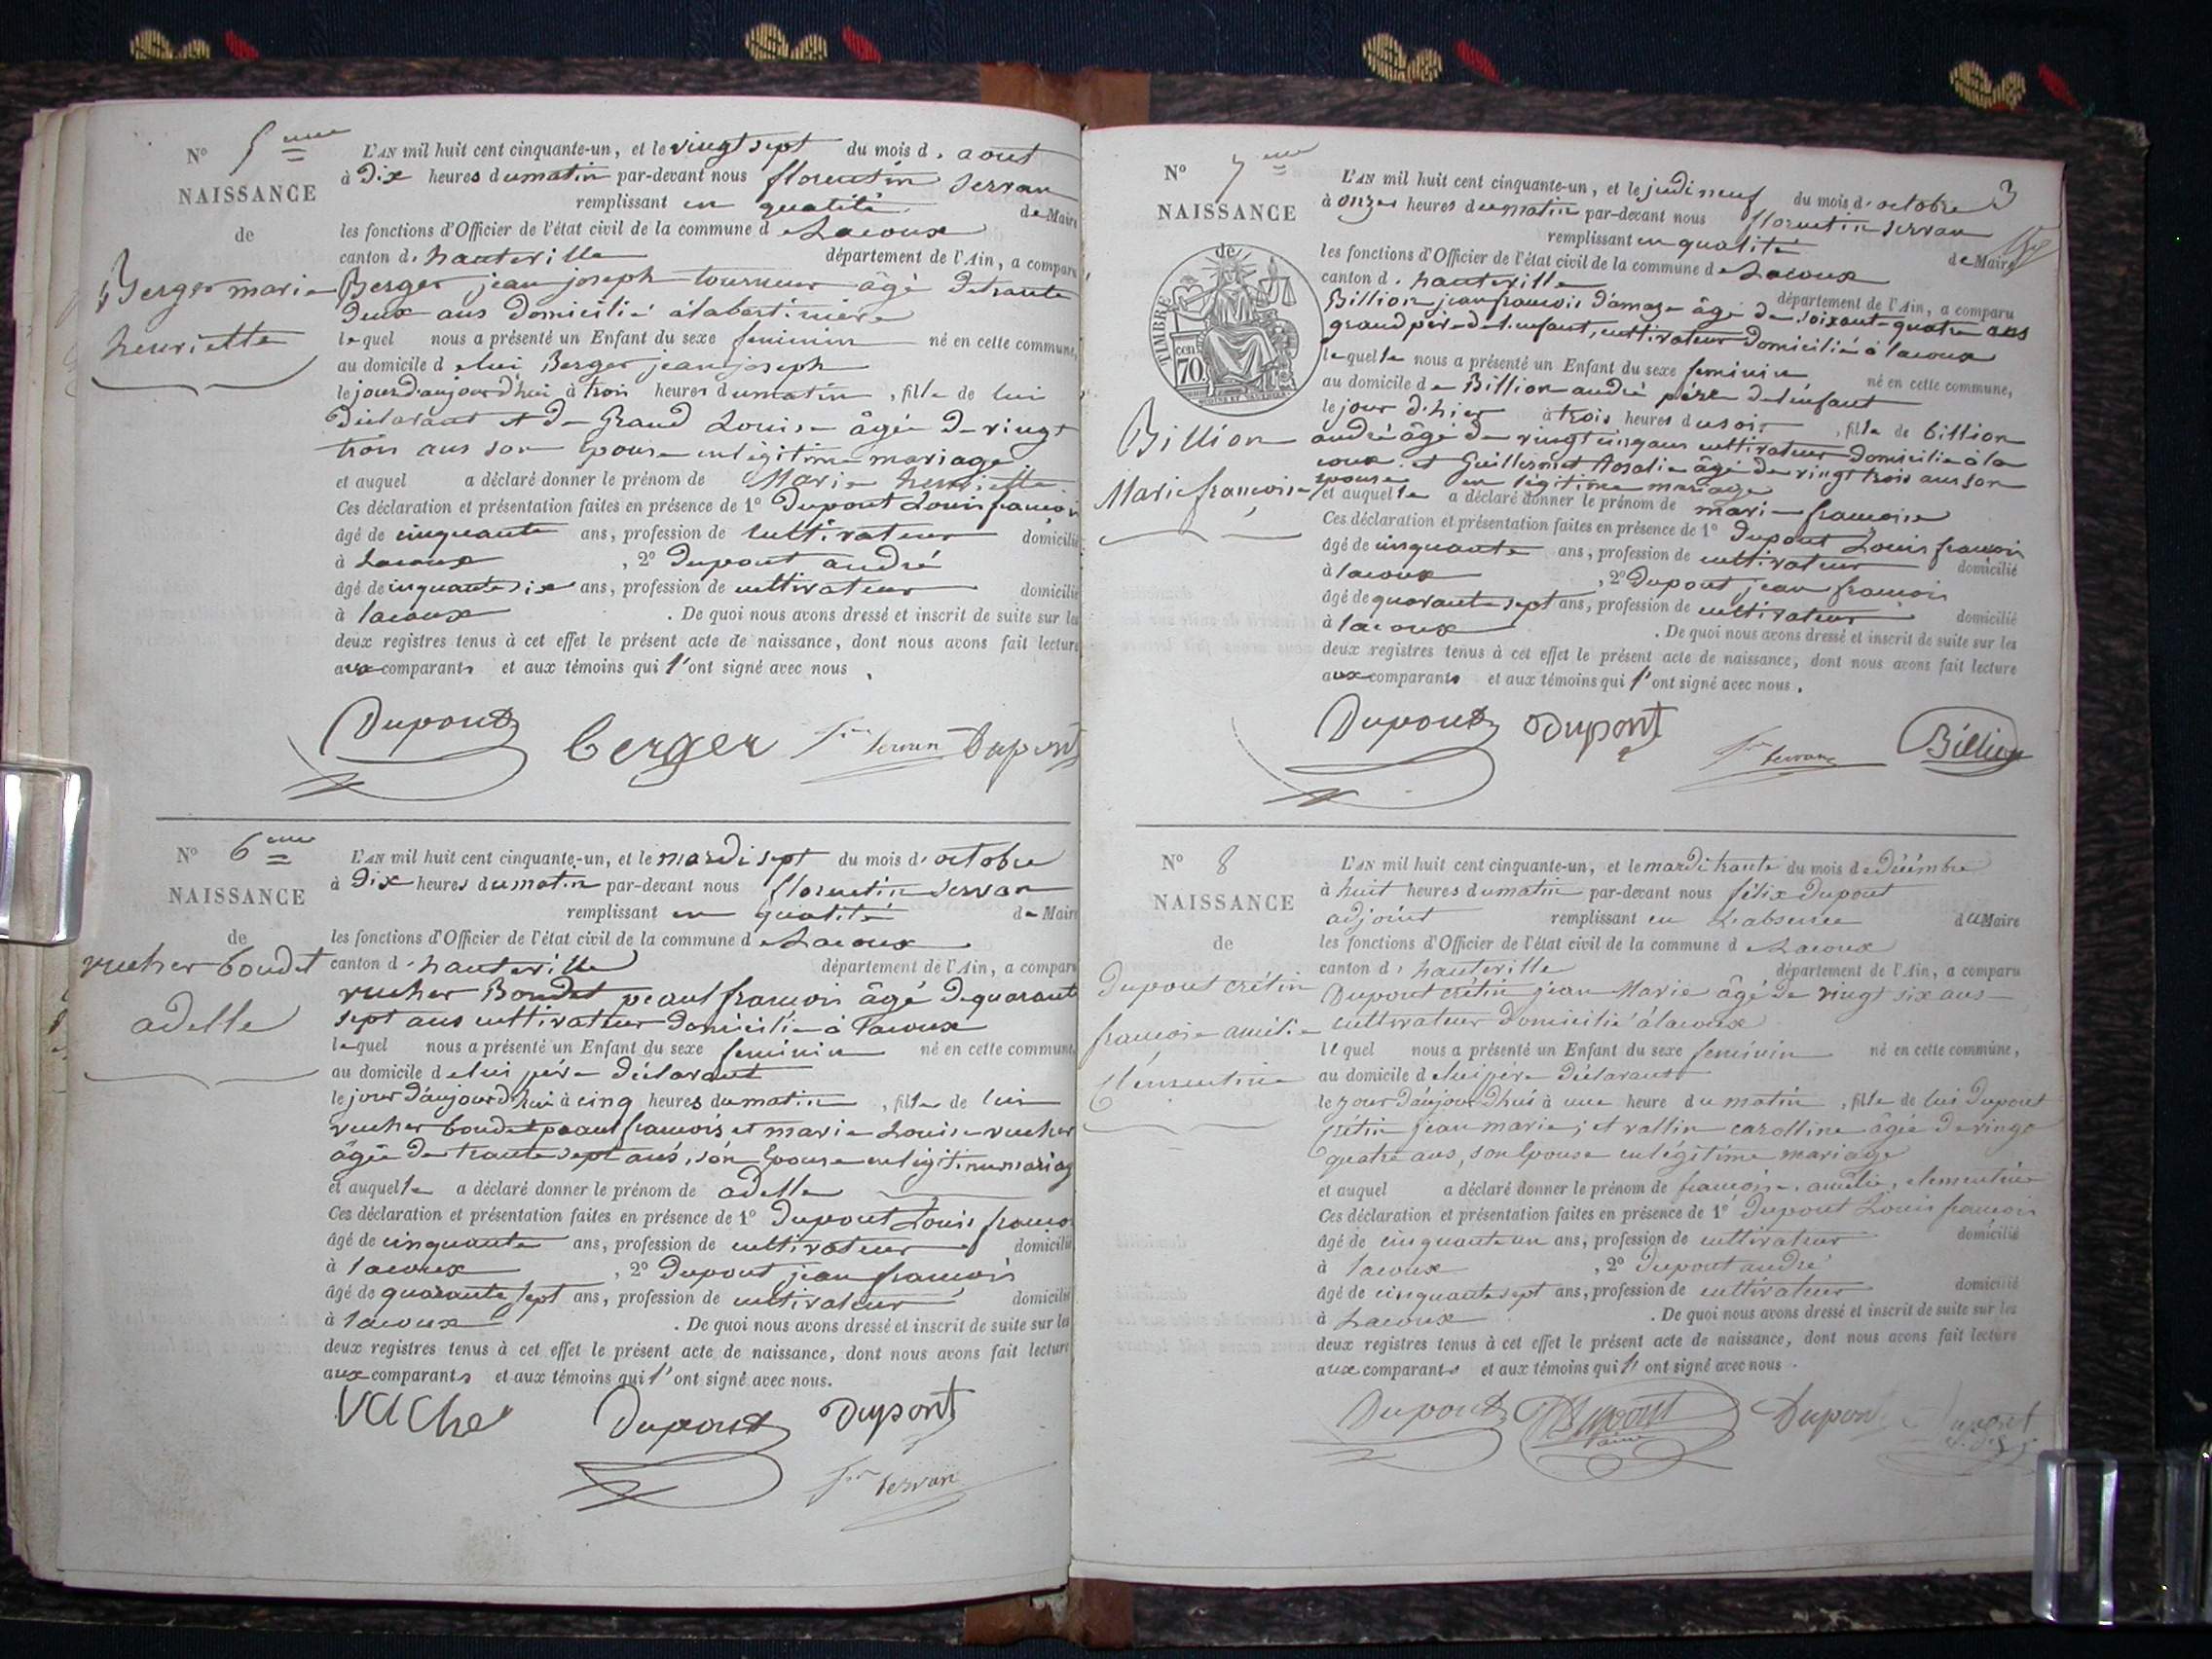 N° 5eme
NAISSANCE
de
Berger marie
henriette
L'AN mil huit cent cinquante-un, et le vingt sept du mois d' aout
à Dix heures du matin par-devant nous florentin Servan
remplissant en qualité de Maire
les fonctions d'Officier de l'état civil de la commune de Lacoux
canton d' hauteville département de l'Ain, a comparu
Berger jean joseph tourneur âgé de trante
Deux ans domicilié à
lequel nous a présenté un Enfant du sexe feminin né en cette commune,
au domicile de lui Berger jean joseph
le jour d'aujourd'hui à trois heures du matin, fille de lui
Déclarant et de Grand Louise âgée de vingt
trois ans son Epouse en légitime mariage
et auquel a déclaré donner le prénom de Marie henriette
Ces déclaration et présentation faites en présence de 1° Dupont Louis françois
âgé de cinquante ans, profession de cultivateur domicilié
à Lacoux, 2° Dupont andré
âgé de cinquante six ans, profession de cultivateur domicilié
à lacoux. De quoi nous avons dressé et inscrit de suite sur les
deux registres tenus à cet effet le présent acte de naissance, dont nous avons fait lecture
aux comparants et aux témoins qui l'ont signé avec nous.
Dupont berger Servan Dupont
N° 6eme
NAISSANCE
de
vucher boudet
adelle
L'AN mil huit cent cinquante-un, et le mardi sept du mois d' octobre
à Dix heures du matin par-devant nous florentin Servan
remplissant en qualité de Maire
les fonctions d'Officier de l'état civil de la commune de Lacoux
canton d' hauteville département de l'Ain, a comparu
vucher Boudet peaul françois âgé de quarante
sept ans cultivateur domicilié à lacoux
lequel nous a présenté un Enfant du sexe feminin né en cette commune,
au domicile de lui père Déclarant
le jour d'aujourd'hui à cinq heures du matin, fille de lui
vucher boudet peaul françois et marie Louise vucher
âgée de trante sept ans, son Epouse en légitime mariage
et auquelle a déclaré donner le prénom de adelle
Ces déclaration et présentation faites en présence de 1° Dupont Louis françois
âgé de cinquante ans, profession de cultivateur domicilié
à lacoux, 2° Dupont jean françois
âgé de quarante sept ans, profession de cultivateur domicilié
à lacoux. De quoi nous avons dressé et inscrit de suite sur les
deux registres tenus à cet effet le présent acte de naissance, dont nous avons fait lecture
aux comparants et aux témoins qui l'ont signé avec nous.
Dupont Dupont
Servan
3
N° 7eme
NAISSANCE
de
TIMBRE
70 cent
Billion
Marie françoise
L'AN mil huit cent cinquante-un, et le jeudi neuf du mois d' octobre
à onze heures du matin par-devant nous florentin Servan
remplissant en qualité de Maire
les fonctions d'Officier de l'état civil de la commune de Lacoux
canton d' hauteville département de l'Ain, a comparu
Billion jean françois âgé de soixante quatre ans
grand père de l'enfant, cultivateur domicilié à lacoux
lequelle nous a présenté un Enfant du sexe feminin né en cette commune,
au domicile de Billion andré père de l'enfant
le jour d'hier à trois heures du soir, fille de billion
andré âgé de vingt cinq ans cultivateur domicilié à la
coux et Guillermet Rosalie âgé de vingt trois ans son
épouse en légitime mariage
et auquelle a déclaré donner le prénom de marie françoise
Ces déclaration et présentation faites en présence de 1° Dupont Louis françois
âgé de cinquante ans, profession de cultivateur domicilié
à lacoux, 2° Dupont jean françois
âgé de quarante sept ans, profession de cultivateur domicilié
à lacoux. De quoi nous avons dressé et inscrit de suite sur les
deux registres tenus à cet effet le présent acte de naissance, dont nous avons fait lecture
aux comparants et aux témoins qui l'ont signé avec nous.
Dupont Dupont Servan Billion
N° 8
NAISSANCE
de
Dupont crétin
françoise amélie
Clémentine
L'AN mil huit cent cinquante-un, et le mardi trante du mois de Décémbre
à huit heures du matin par-devant nous félix Dupont
adjoint remplissant en L'absence du Maire
les fonctions d'Officier de l'état civil de la commune de Lacoux
canton d' hauteville département de l'Ain, a comparu
Dupont crétin jean Marie âgé de vingt six ans
cultivateur domicilié à lacoux
lequel nous a présenté un Enfant du sexe feminin né en cette commune,
au domicile de lui père Déclarant
le jour d'aujourd'hui à une heure du matin, fille de lui Dupont
Crétin jean marie, et vallin carolline âgée de vingt
quatre ans, son Epouse en légitime mariage
et auquel a déclaré donner le prénom de françoise, amélie, clementine
Ces déclaration et présentation faites en présence de 1° Dupont Louis françois
âgé de cinquante un ans, profession de cultivateur domicilié
à lacoux, 2° Dupont andré
âgé de cinquante sept ans, profession de cultivateur domicilié
à Lacoux. De quoi nous avons dressé et inscrit de suite sur les
deux registres tenus à cet effet le présent acte de naissance, dont nous avons fait lecture
aux comparants et aux témoins qui l'ont signé avec nous.
Dupont Dupont Dupont Dupont